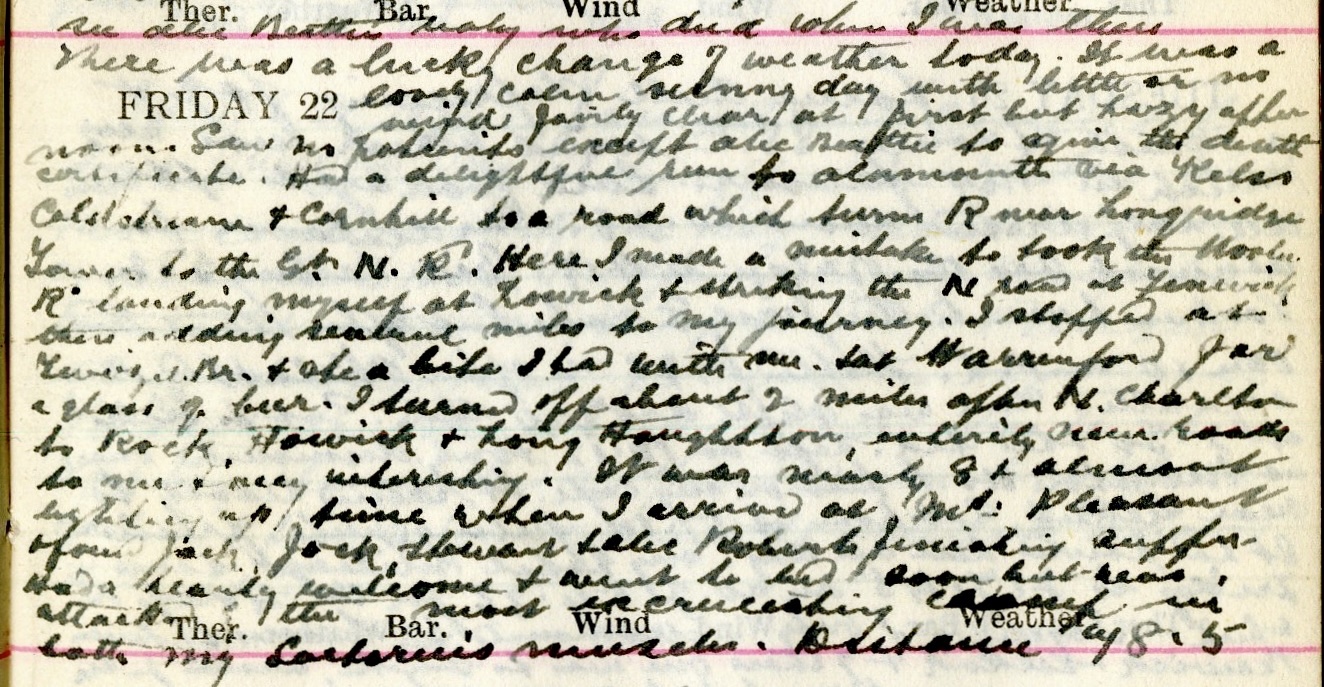 Ther. Bar. Wind Weather
see Alec Beattie's baby who died when I was there
There was a lucky change of weather today. It was a
FRIDAY 22 lovely calm sunny day with little or no
wind fairly clear at first but hazy after
noon. Saw no patients except Alec Beattie to give the death
certificate. Had a delightful run to Alnmouth via Kelso
Coldstream & Cornhill to a road which turns R near Longridge
Towers to the Gt. N. R. Here I made a mistake & took the Wooler
R landing myself at Lowick & striking the N road at Fenwick
thus adding several miles to my journey. I stopped at
Br. & ate a bite I had with me. & at Warrenford I had
a glass of beer. I turned off about 2 miles after N. Charlton
to Rock, Howick & Long Houghton, entirely new roads
to me & very interesting. It was nearly 8 & almost
lighting up time when I arrived at Mt. Pleasant
found Jack, Jock, Stewart & Alec Roberts finishing supper
Had a hearty welcome & went to bed soon but had
attacks of the most excruciating cramp in
Ther. Bar. Wind Weather
both my Sartorius muscles. Distance 98.5